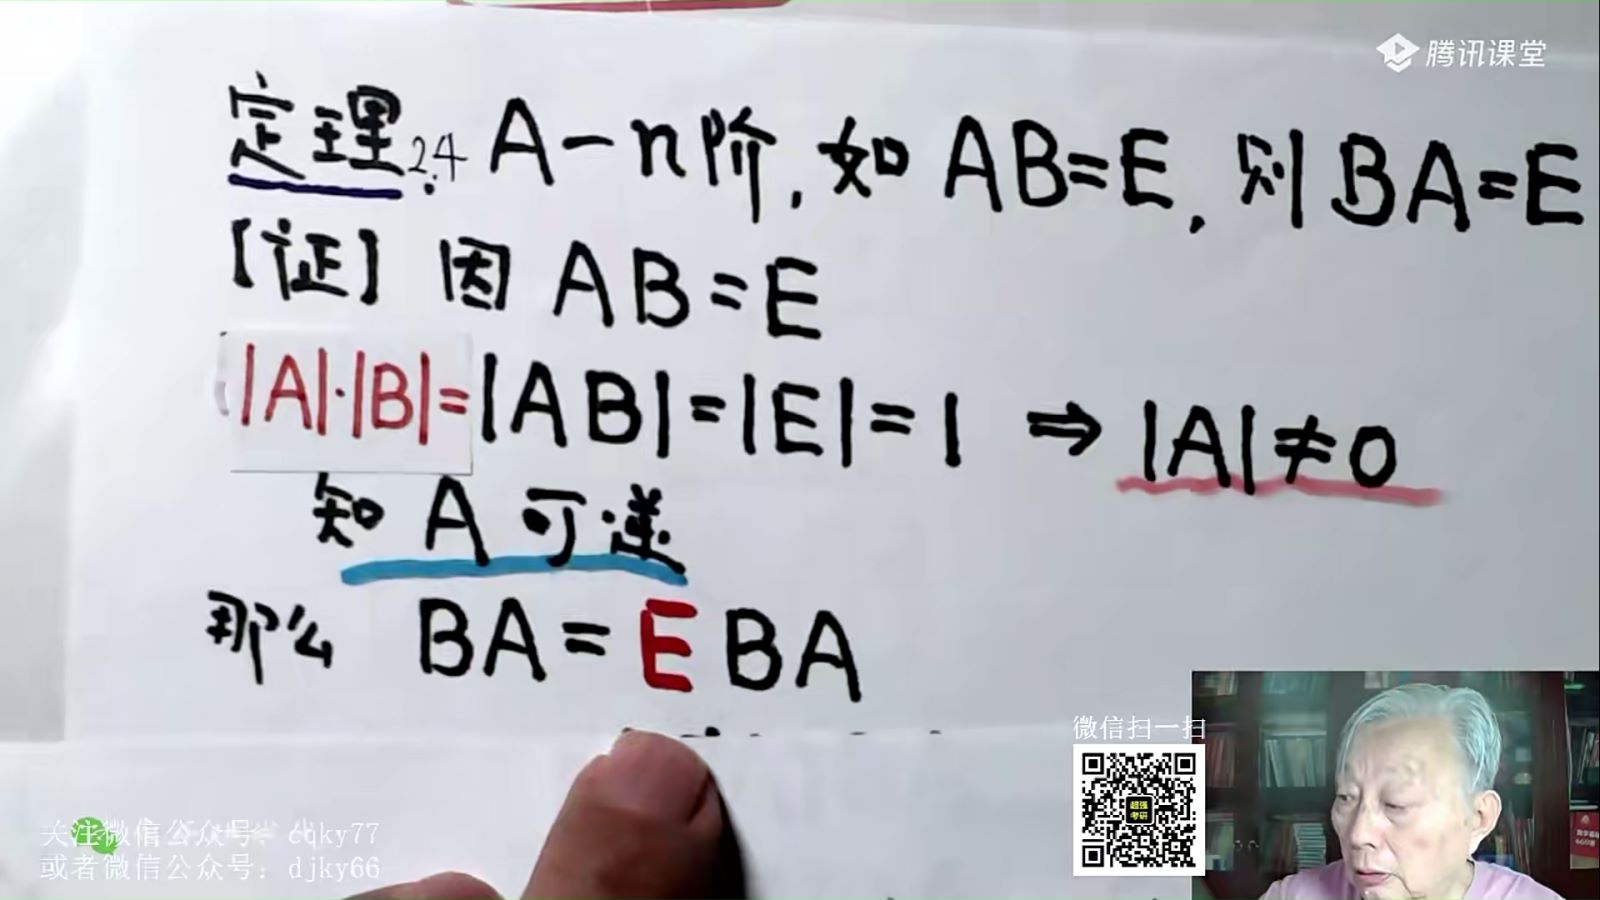 腾讯课堂
定理2.4 A-n阶, 如 AB=E, 则 BA=E
【证】 因 AB=E
|A|·|B|=|AB|=|E|=1 ⇒ |A|≠0
知 A 可逆
那么 BA=EBA
微信扫一扫
超强
考研
关注微信公众号: cqky77
或者微信公众号: djky66